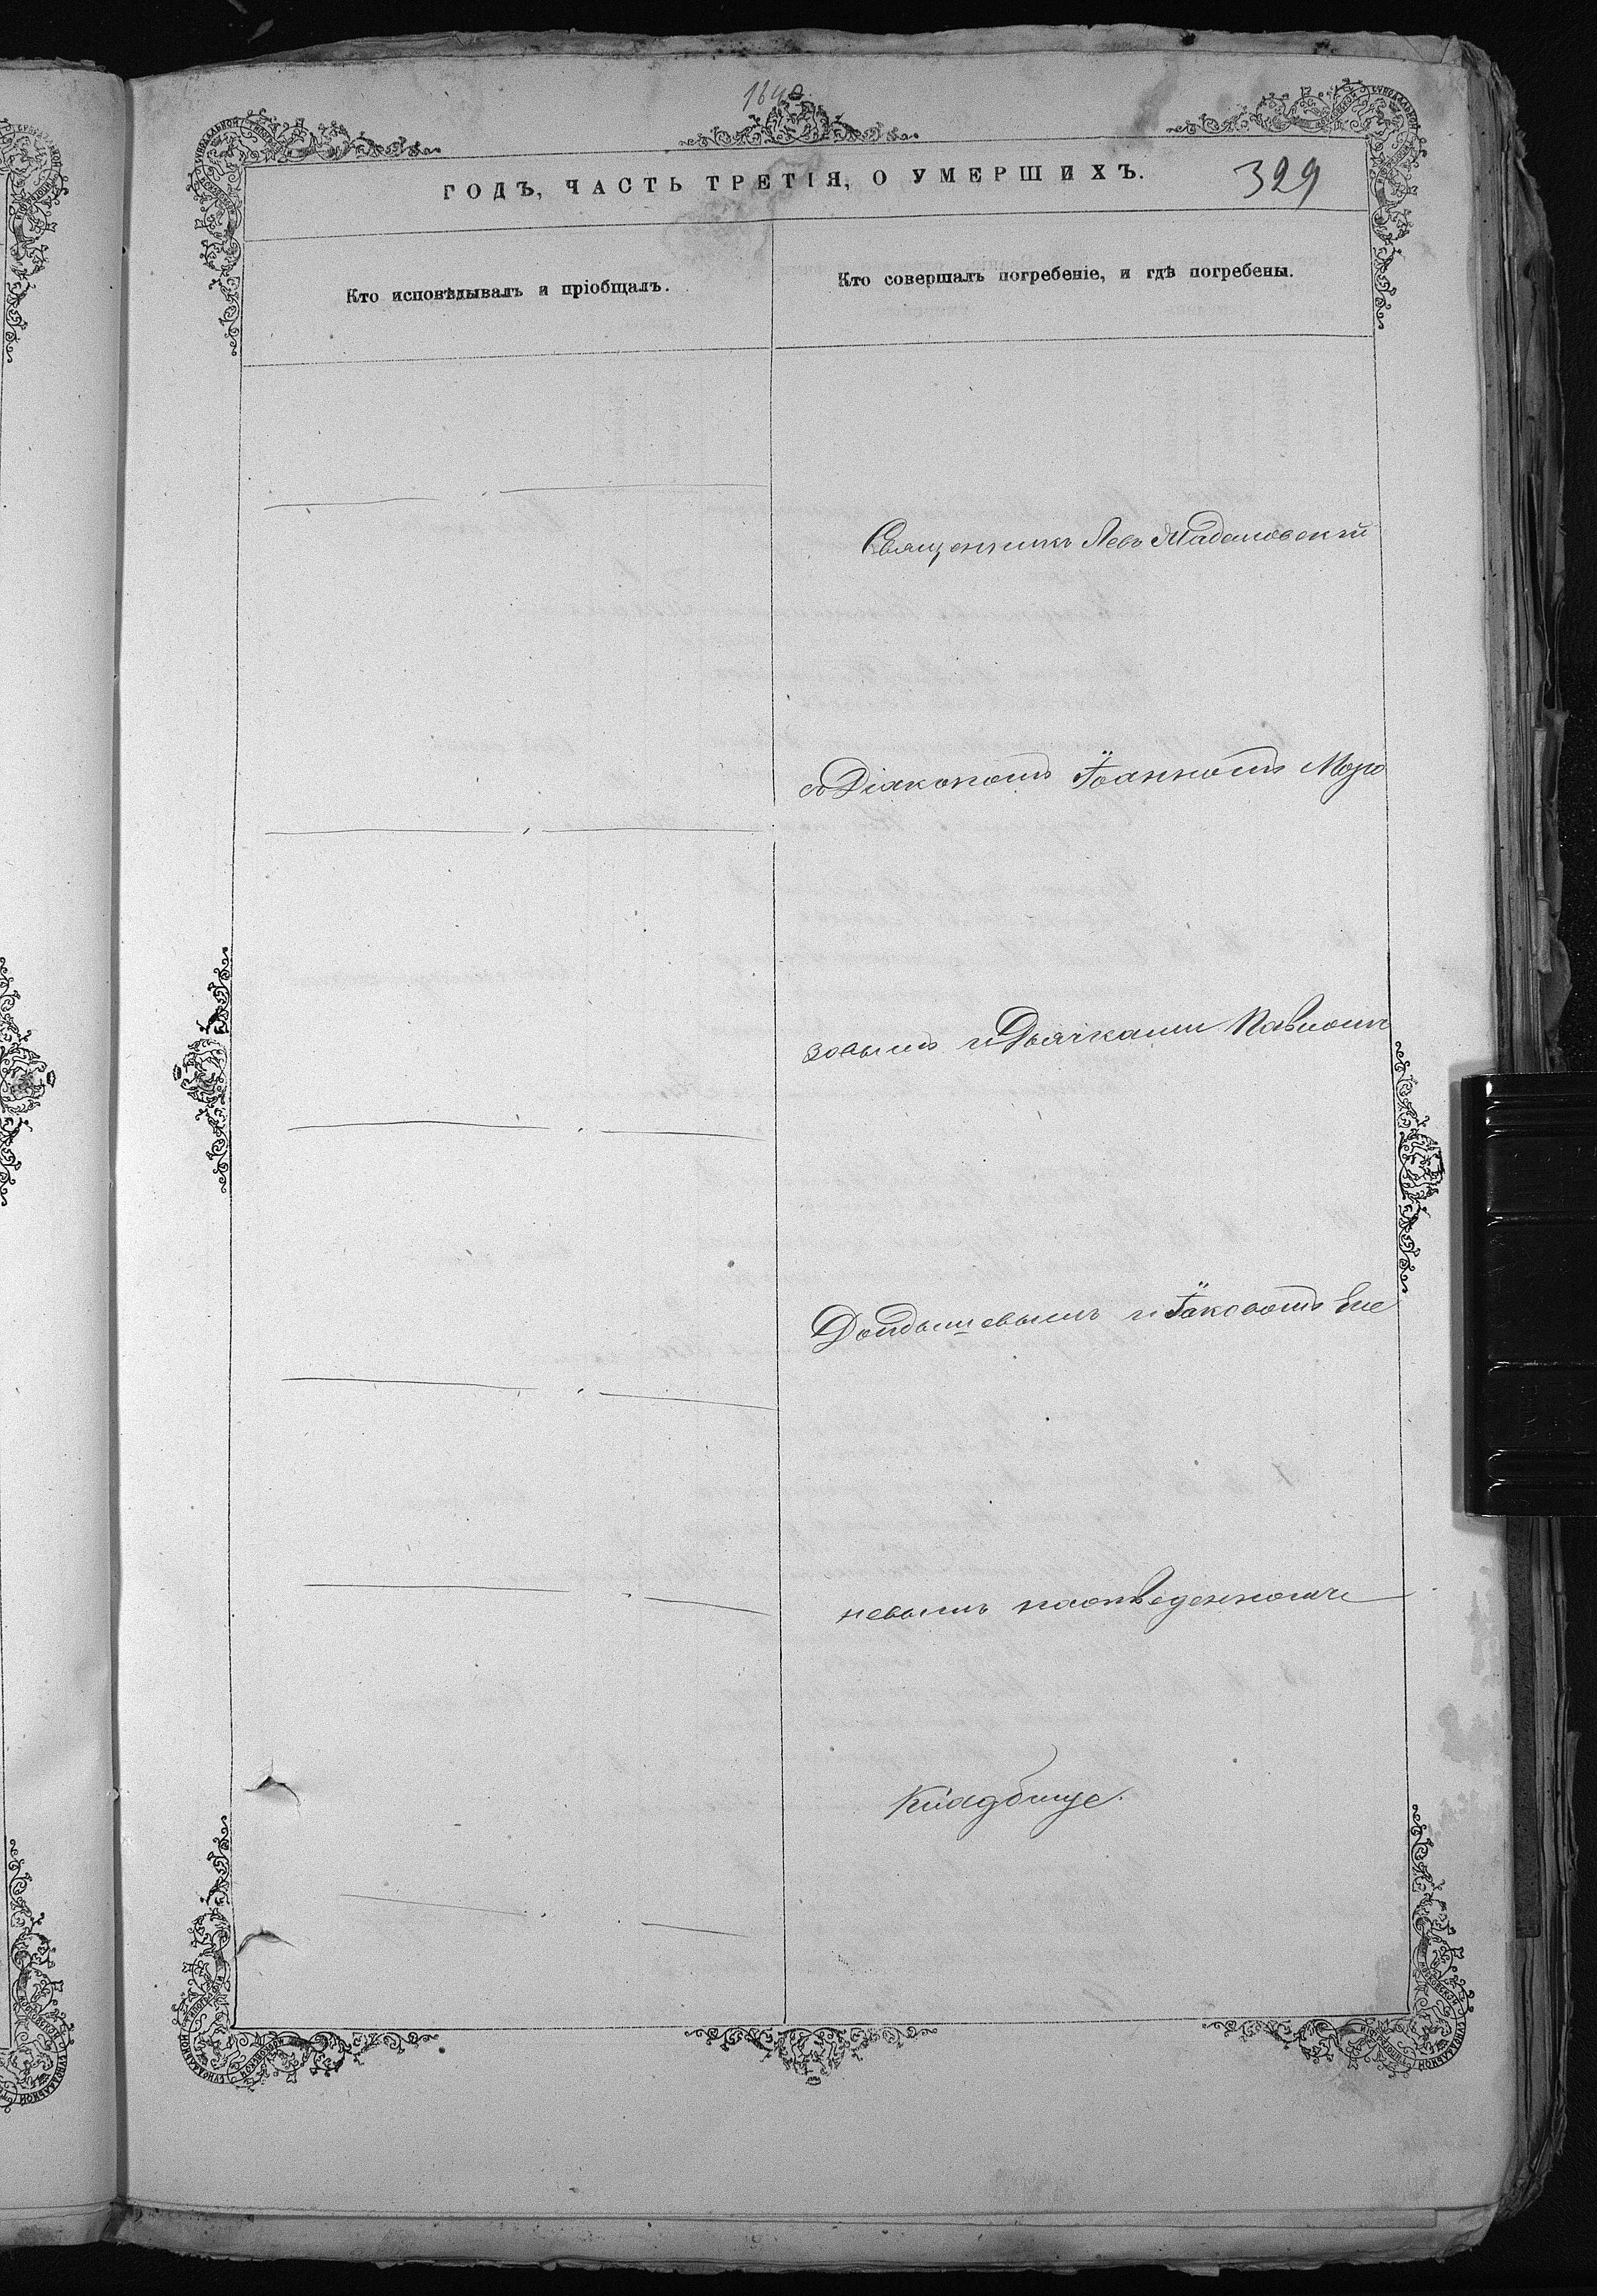 1640.
ГОДЪ, ЧАСТЬ ТРЕТІЯ, О УМЕРШИХЪ.
329
Кто исповѣдывалъ и пріобщалъ.
Кто совершалъ погребеніе, и гдѣ погребены.
Священникъ Левъ
съ Діакономъ Іоанномъ Моро
зовымъ и Дьячками Павломъ
и Іаковомъ Еме
невымъ наотведенномъ
Кладбище.